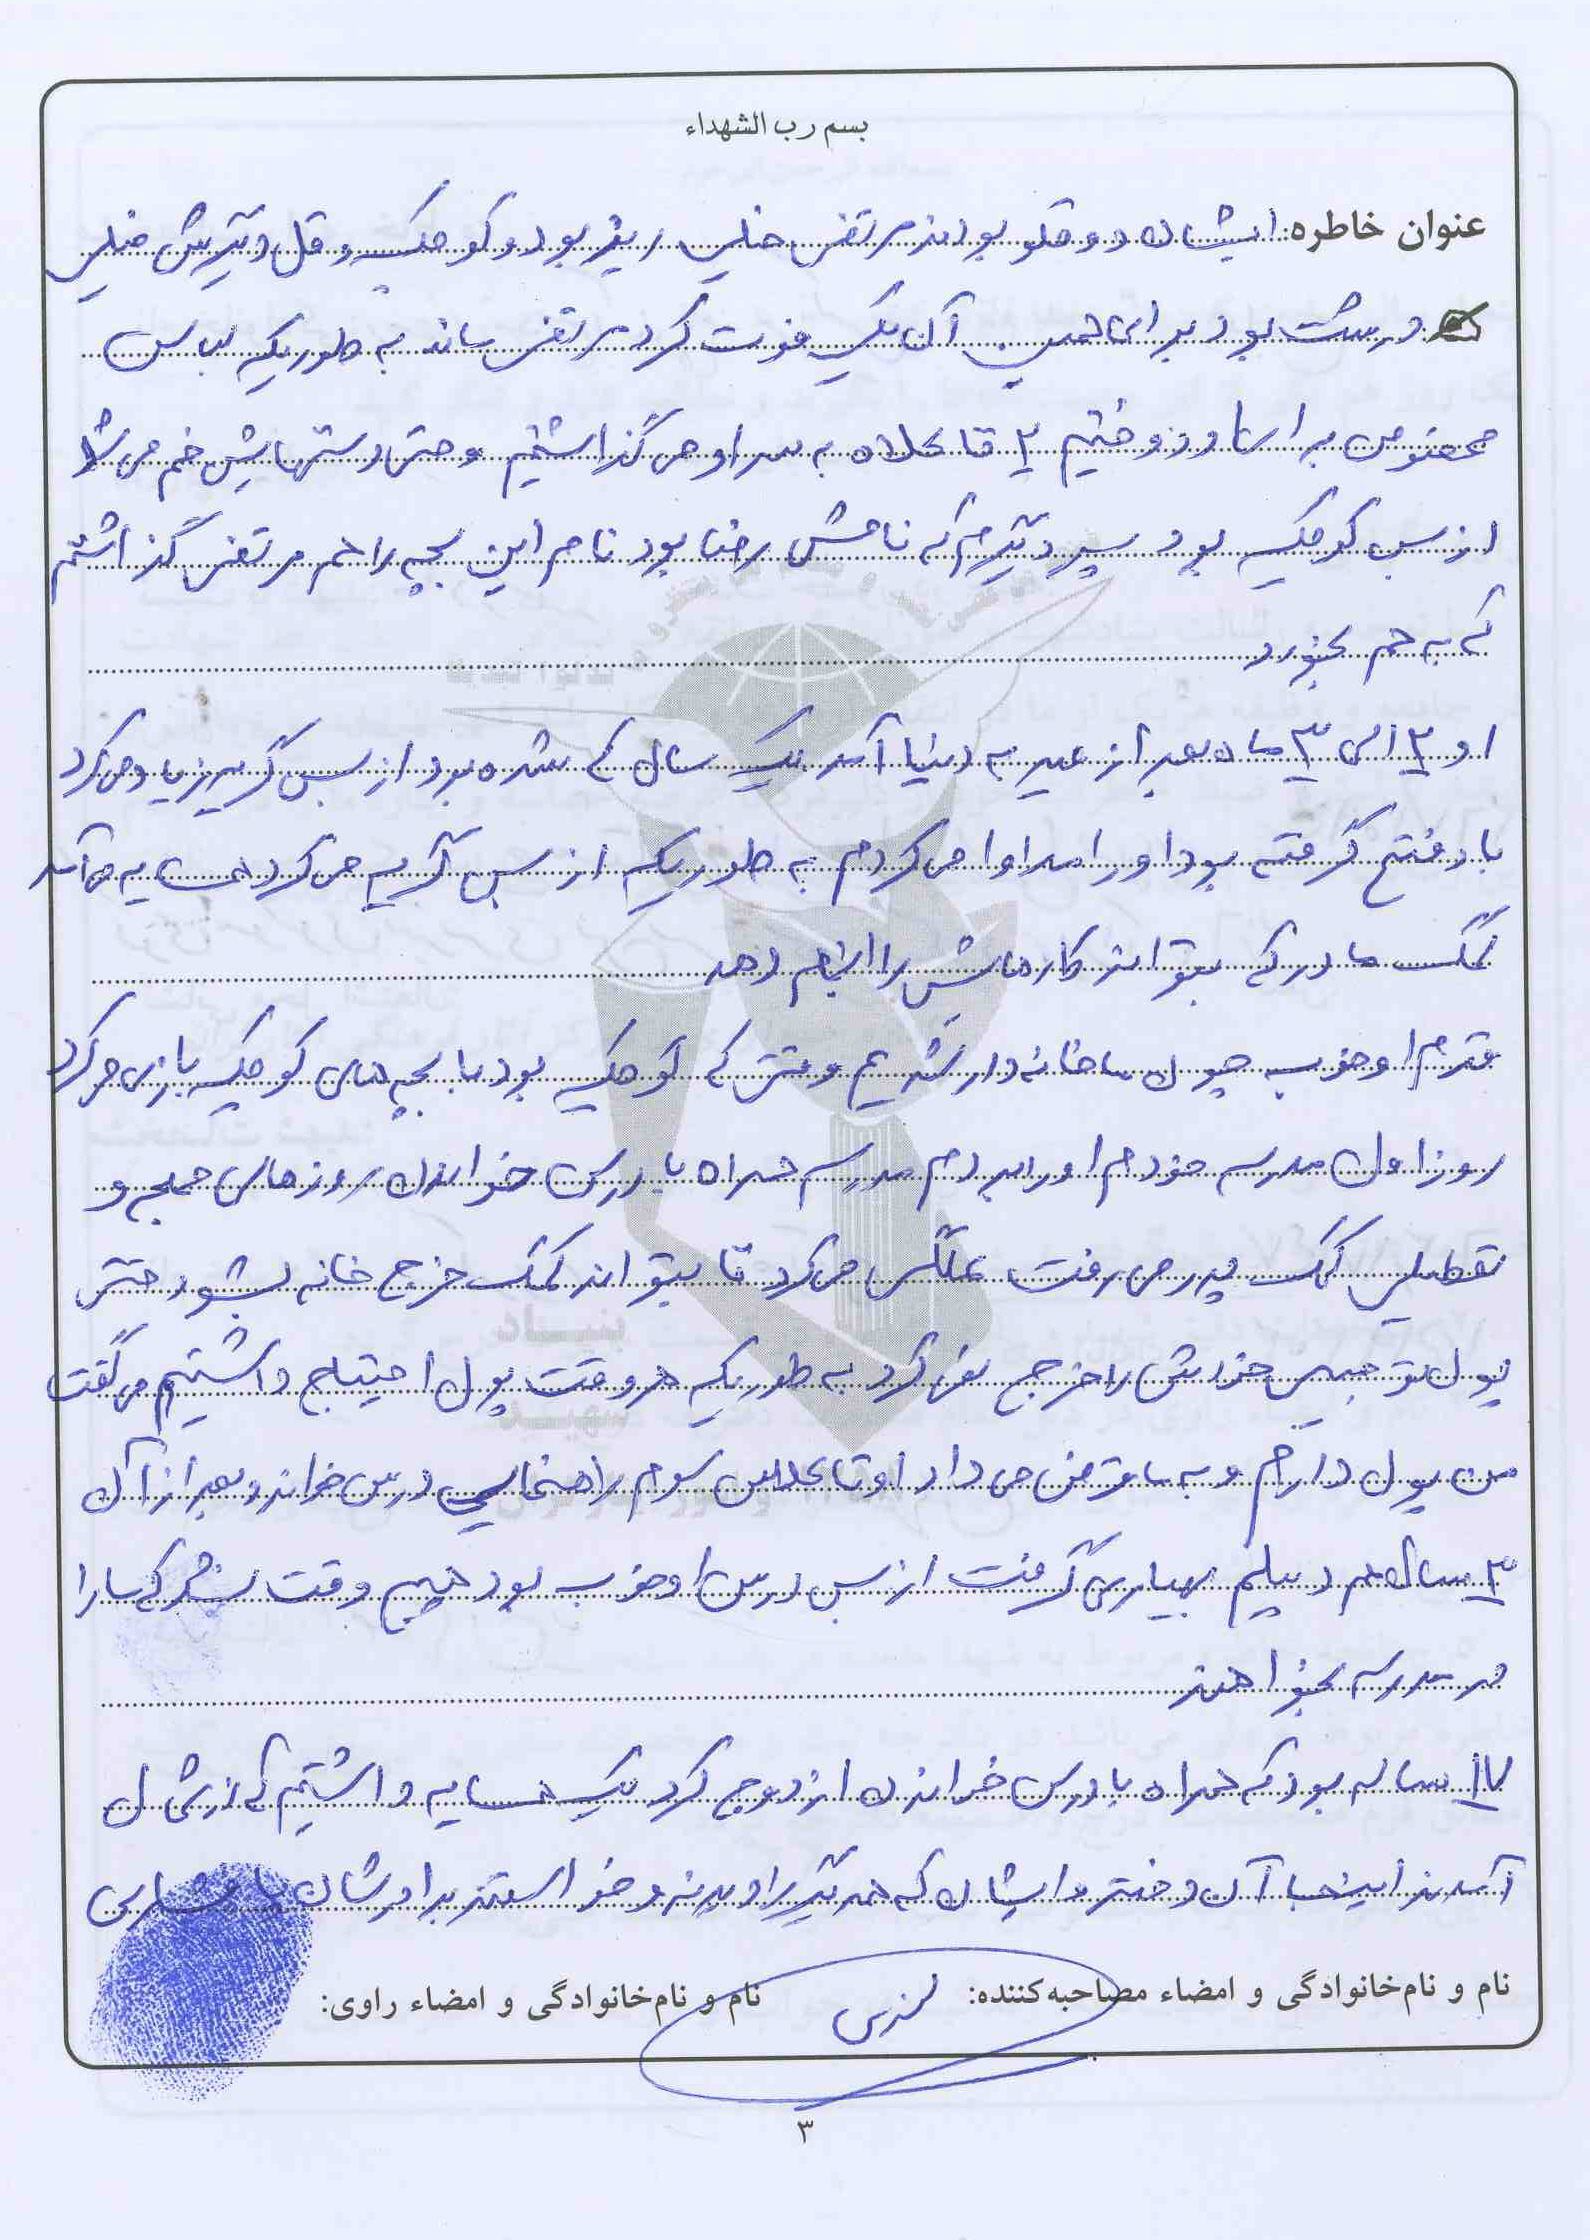 بسم رب الشهداء
عنوان خاطره: ایشان دو قلو بودند مرتضی خیلی ریز بود و کوچک و قل دیگرش خیلی
درشت بود برای همین آن یکی فوت کرد مرتضی ماند به طوریکه لباس
مخصوص برای او دوختیم ۲ تا کلاه به سر او می گذاشتیم و حتی دستهایش خم می شد
از بس کوچک بود پسر دیگرم که نامش رضا بود نام این بچه را هم مرتضی گذاشتم
که به هم بخورد
او ۲ الی ۳ ماه بعد از عید به دنیا آمد یک سال که شده بود از بس گریه زیاد می کرد
باد فتح گرفته بود او را مداوا می کردم به طوریکه از بس گریه می کرد همسایه می آمد
کمک مادر که بتواند کارهایش را انجام دهد
قدم او خوب چون ما خانه دار شدیم وقتی که کوچک بود با بچه های کوچک بازی می کرد
روز اول مدرسه خودم او را بردم مدرسه همراه با درس خواندن روزهای جمعه و
تعطیلی کمک پدر می رفت عملگی می کرد تا بتواند کمک خرج خانه بشود حتی
پول تو جیبی خودش را خرج نمی کرد به طوریکه هر وقت پول احتیاج داشتیم می گفت
من پول دارم و به ما قرض می داد او تا کلاس سوم راهنمایی درس خواند و بعد از آن
۳ سال هم دیپلم بهیاری گرفت از بس درس او خوب بود هیچ وقت نشد که ما را
در مدرسه بخواهند
۱۷ ساله بود که همراه با درس خواندن ازدواج کرد یک همسایه داشتیم که از شمال
آمدند اینجا آن دختر و ایشان که همدیگر را دیدند و خواستند برادرشان
نام و نام‌خانوادگی و امضاء مصاحبه‌کننده:
نام و نام‌خانوادگی و امضاء راوی:
۳
بنیاد
شهید